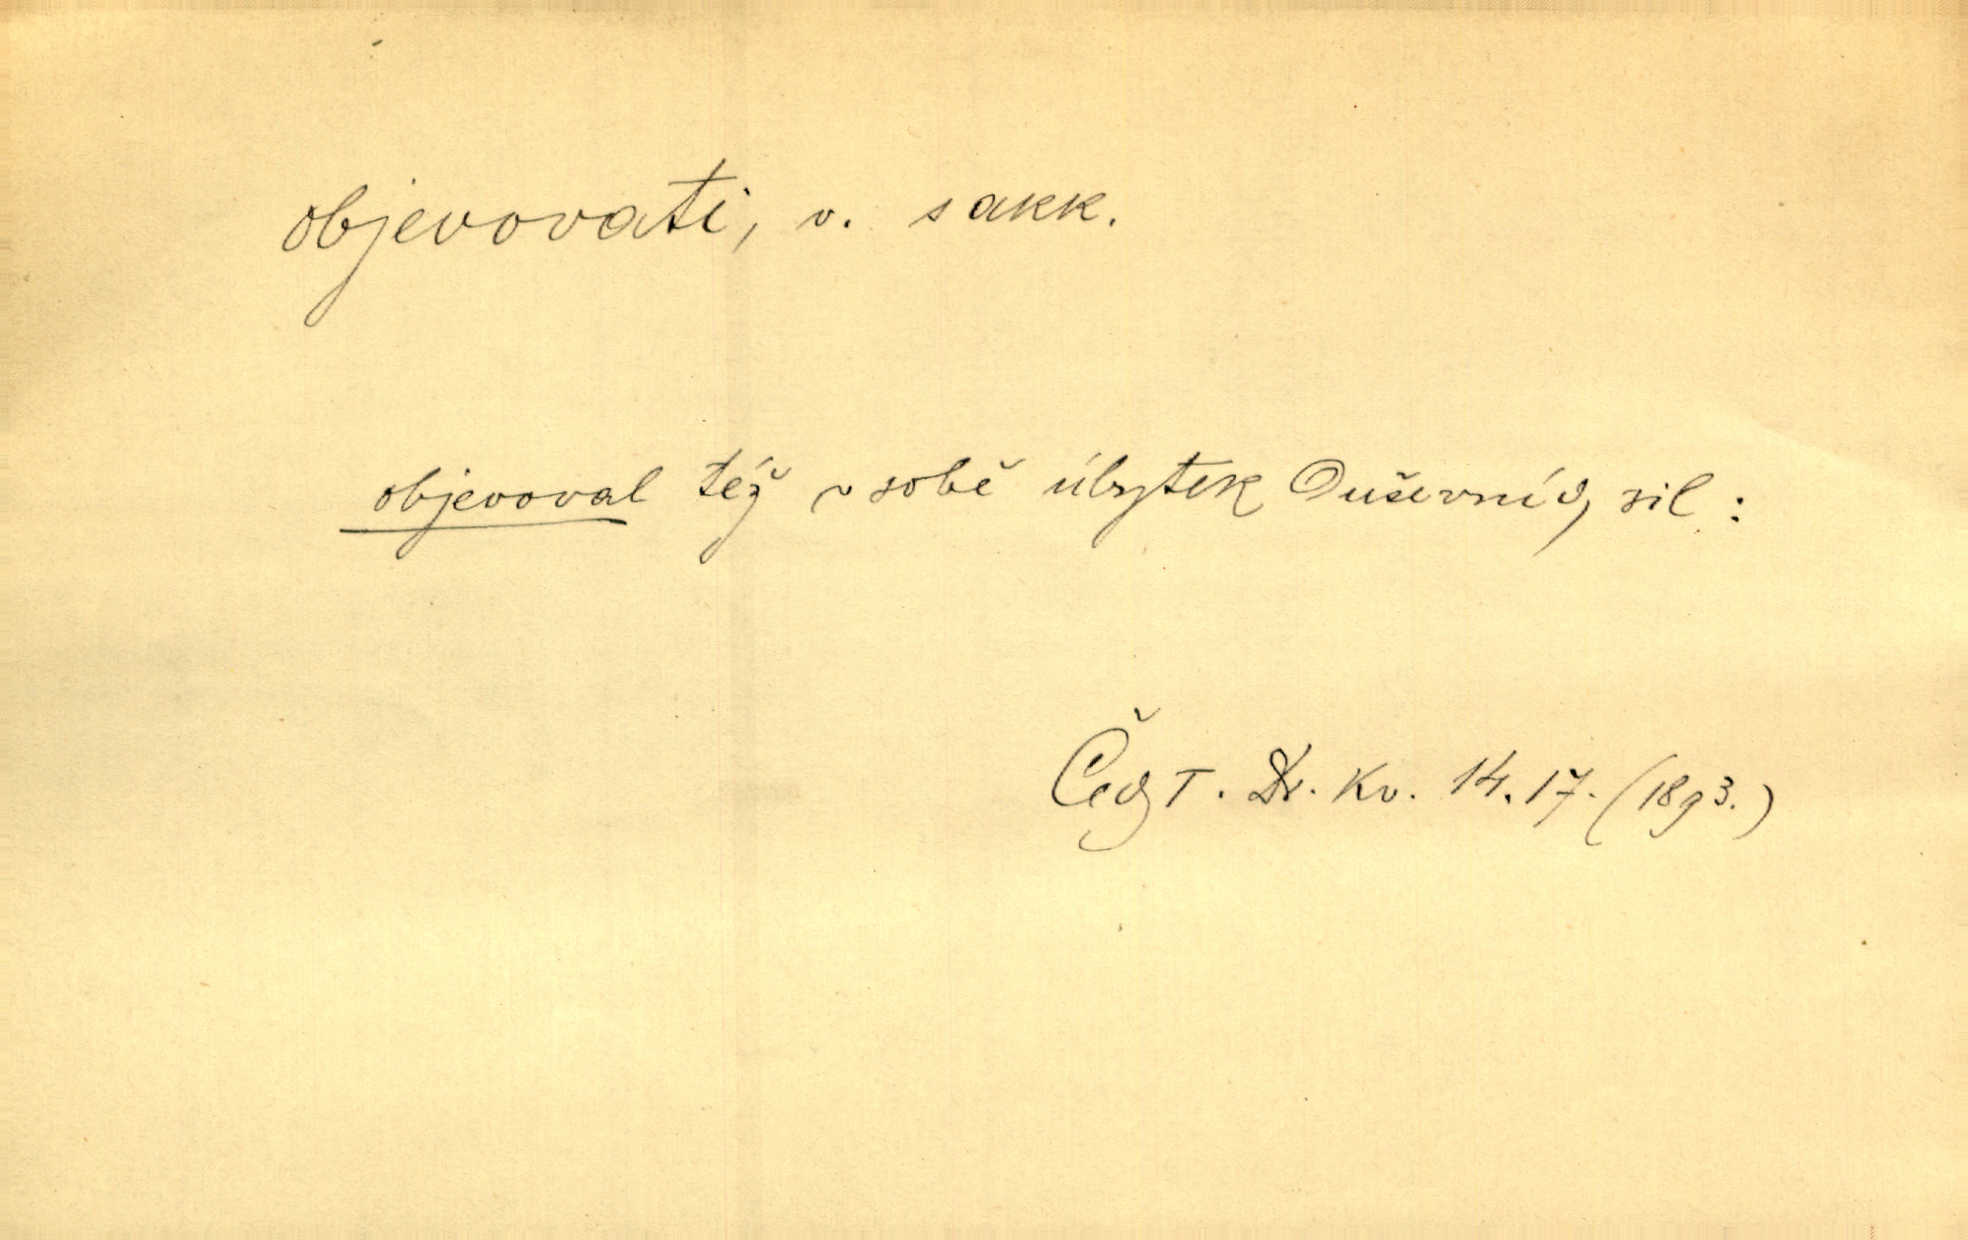 objevovati, v. s akk.
objevoval též v sobě úbytek duševních sil :
Čech T. Dr. Kv. 14. 17. (1893.)